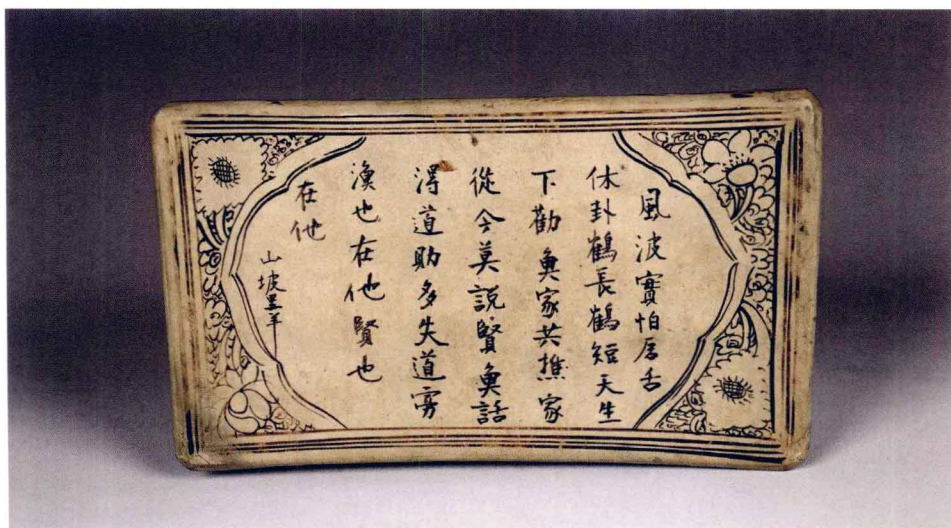 風波實怕唇舌
休卦鶴長鶴短天生
下勸魚家共樵家
從今莫說賢魚話
得道助多失道寡
漁也在他賢也
在他
山坡里羊